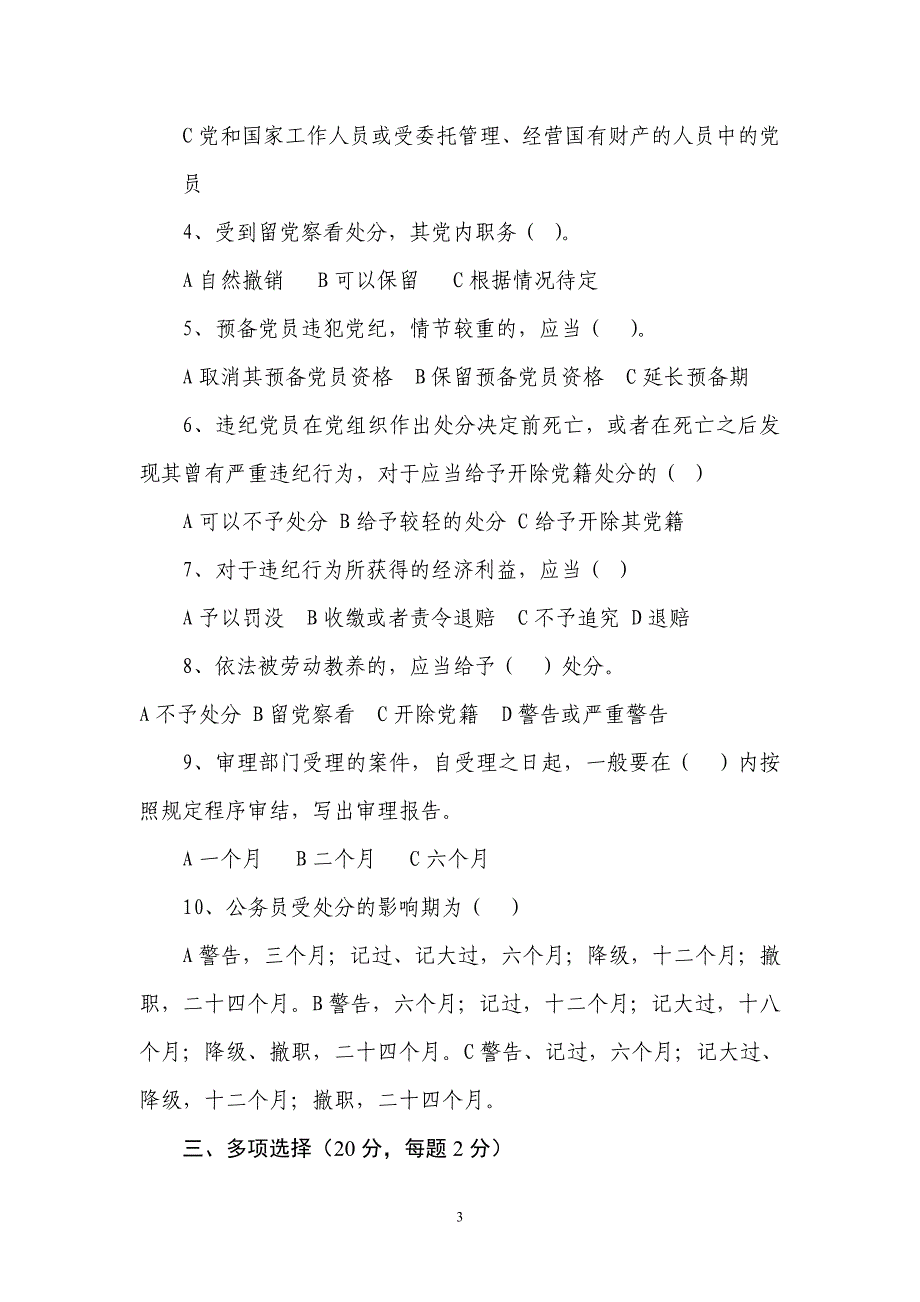 C党和国家工作人员或受委托管理、经营国有财产的人员中的党
员
4、受到留党察看处分，其党内职务（  ）。
A自然撤销   B可以保留   C根据情况待定
5、预备党员违犯党纪，情节较重的，应当（   ）。
A取消其预备党员资格  B保留预备党员资格  C延长预备期
6、违纪党员在党组织作出处分决定前死亡，或者在死亡之后发
现其曾有严重违纪行为，对于应当给予开除党籍处分的（  ）
A可以不予处分 B给予较轻的处分 C给予开除其党籍
7、对于违纪行为所获得的经济利益，应当（  ）
A予以罚没  B收缴或者责令退赔  C不予追究 D退赔
8、依法被劳动教养的，应当给予（   ）处分。
A不予处分 B留党察看  C开除党籍  D警告或严重警告
9、审理部门受理的案件，自受理之日起，一般要在（   ）内按
照规定程序审结，写出审理报告。
A一个月   B二个月   C六个月
10、公务员受处分的影响期为（   ）
A警告，三个月；记过、记大过，六个月；降级，十二个月；撤
职，二十四个月。B警告，六个月；记过，十二个月；记大过，十八
个月；降级、撤职，二十四个月。C警告、记过，六个月；记大过、
降级，十二个月；撤职，二十四个月。
三、多项选择（20分，每题2分）
3